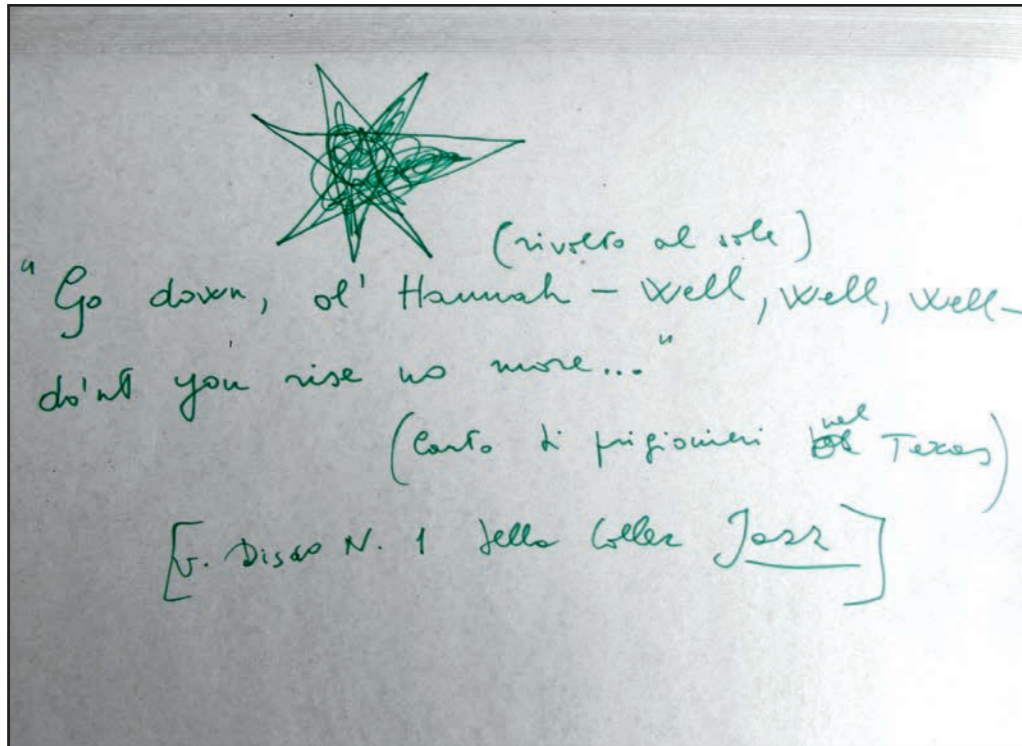 (rivolto al sole)
"Go down, ol' Hannah – Well, Well, Well –
do'nt you rise no more..."
(Canto di prigionieri nel Texas)
[v. Disco N. 1 della Collez Jazz]